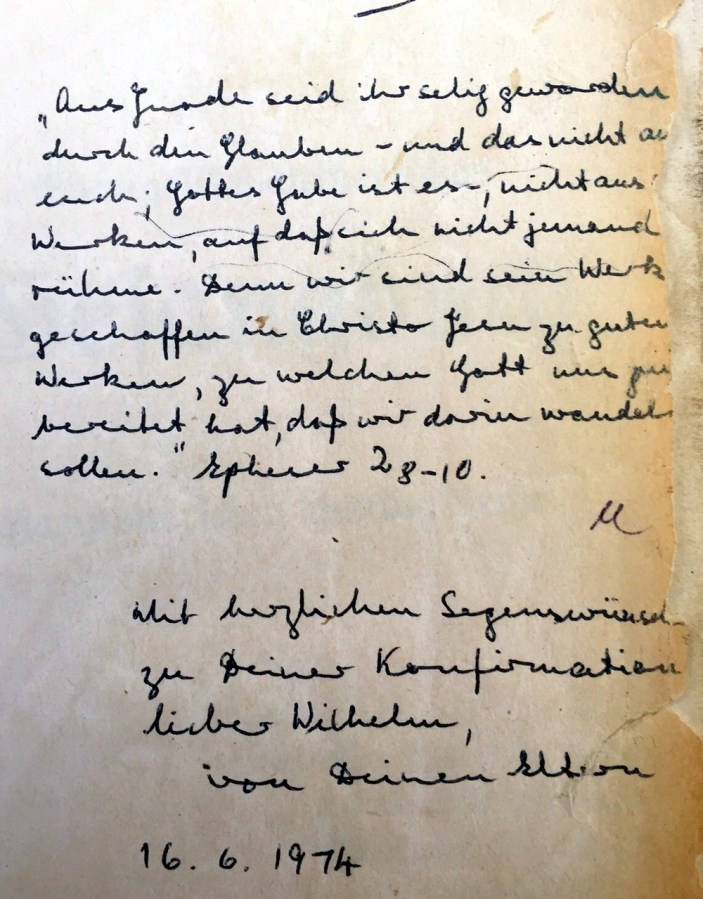 „Aus Gnade seid ihr selig geworden
durch den Glauben – und das nicht au
euch, Gottes Gabe ist es –, nicht aus
Werken, auf daß sich nicht jemand
rühme. Denn wir sind sein Werk
geschaffen in Christo Jesu zu guten
Werken, zu welchen Gott uns zu
bereitet hat, daß wir darin wandeln
sollen." Epheser 2 8–10.
Mit herzlichen Segenswünsch-
zu Deiner Konfirmation
lieber Wilhelm,
von Deinen Eltern
16. 6. 1974